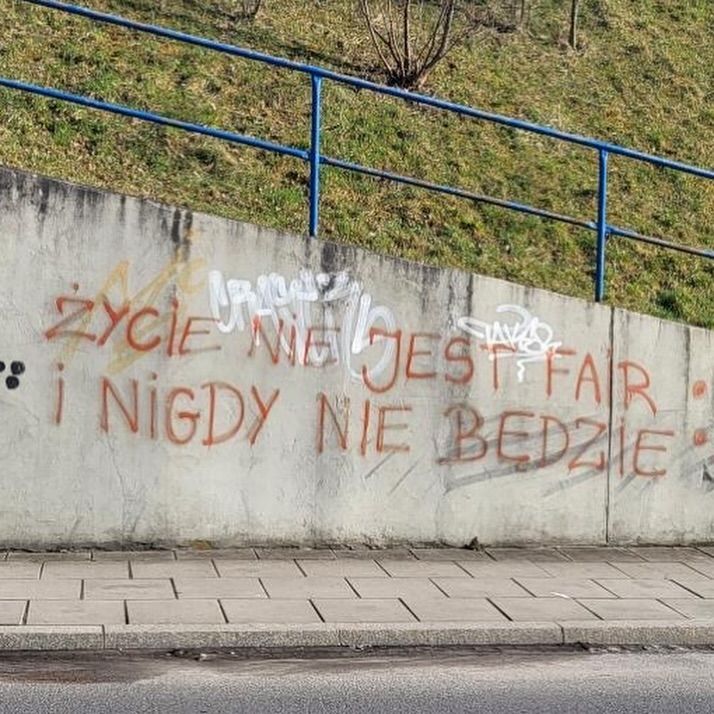 ŻYCIE NIE JEST FAIR :
I NIGDY NIE BĘDZIE :